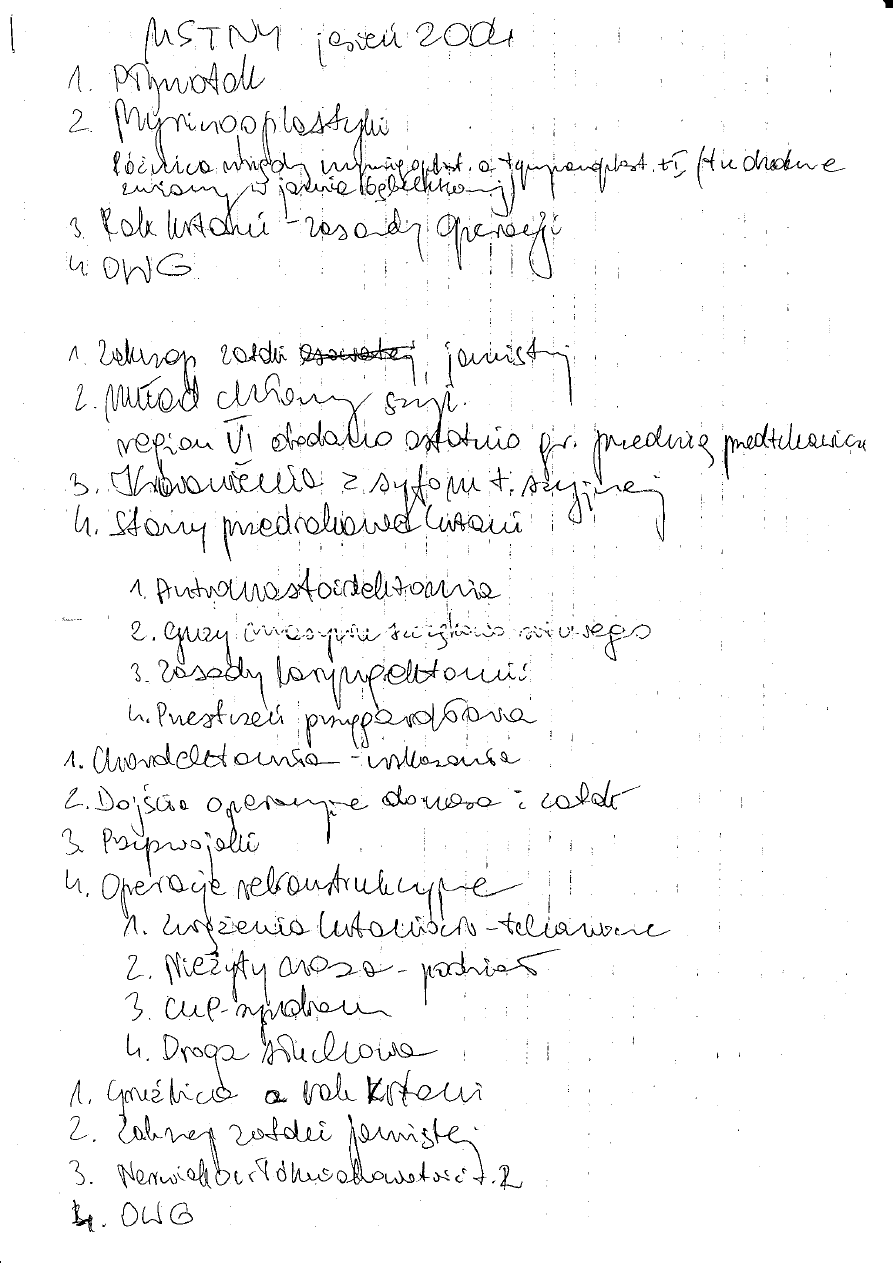 USTNY jesień 2004
1. Przyzwojaki
2. Myringoplastyki
Różnica między myringoplast. a tympanoplast. tI,
zmiany w jamie bębenkowej)
3. Rak krtani - zasady operacji
4. OWG
1. Zakrzep zatoki esowatej jamistej
2. Układ chłonny szyi.
region VI dodano ostatnio gr. przednią przedtchawicz
3. Krwawienia z syfonu t. szyjnej
4. Stany przedrakowe krtani
1. Antromastoidektomia
2. Guzy
3. Zasady laryngektomii
4. Przestrzeń przygardłowa
1. Chordektomia - wskazania
2. Dojścia operacyjne do nosa i zatok
3. Przyzwojaki
4. Operacje rekonstrukcyjne
1. Zwężenia krtaniowo-tchawicze
2. Nieżyty nosa - podział
3. CUP-syndrom
4. Droga słuchowa
1. Gruźlica a rak krtani
2. Zakrzep zatoki jamistej
3. Nerwiakowłókniakowatość t. 2
4. OWG